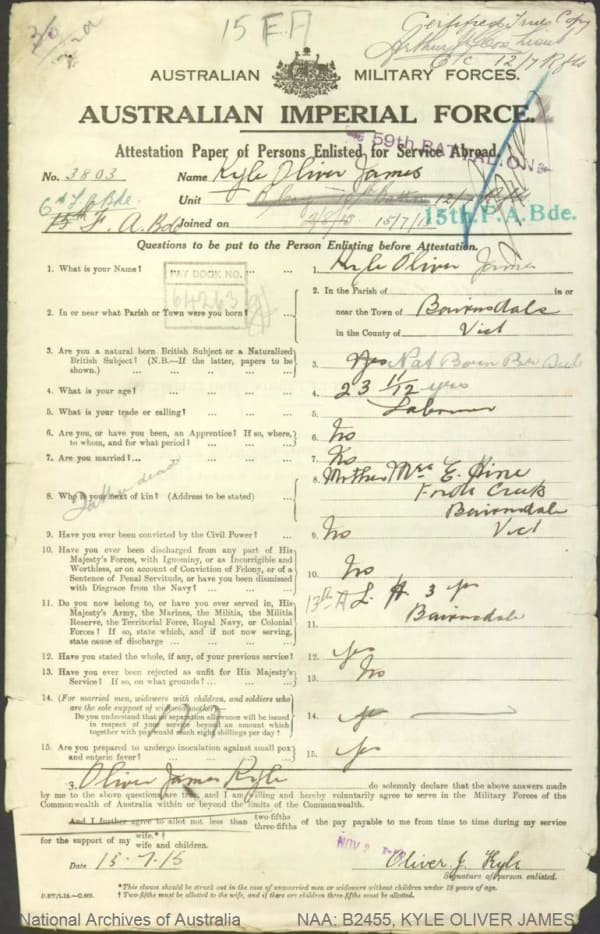 15 F.A
Certified True Copy
Lieut
O/C 12/7 Rfts
AUSTRALIAN MILITARY FORCES.
AUSTRALIAN IMPERIAL FORCE.
59th BATTALION
Attestation Paper of Persons Enlisted for Service Abroad.
No. 3803 Name Kyle Oliver James
6th F A Bde. Unit
15th F. A. Bde Joined on 15/7/15
15th. F. A. Bde.
Questions to be put to the Person Enlisting before Attestation.
1. What is your Name? ... ... 1. Kyle Oliver James
PAY BOOK NO.
64263
2. In or near what Parish or Town were you born? ... 2. In the Parish of in or
near the Town of Bairnsdale
in the County of Vict
3. Are you a natural born British Subject or a Naturalized
British Subject? (N.B.—If the latter, papers to be
shown.) ... ... ... ... 3. Yes Nat Born Br Sub
4. What is your age? ... ... ... 4. 23 11/12 yrs
5. What is your trade or calling? ... ... ... 5. Labourer
6. Are you, or have you been, an Apprentice? If so, where,
to whom, and for what period? ... ... ... 6. No
7. Are you married? ... ... ... ... 7. No
Father dead
8. Who is your next of kin? (Address to be stated) ... 8. Mother Mrs E. Hine
Forge Creek
Bairnsdale
Vict
9. Have you ever been convicted by the Civil Power? ... 9. No
10. Have you ever been discharged from any part of His
Majesty's Forces, with Ignominy, or as Incorrigible and
Worthless, or on account of Conviction of Felony, or of a
Sentence of Penal Servitude, or have you been dismissed
with Disgrace from the Navy? ... ... ... 10. No
11. Do you now belong to, or have you ever served in, His
Majesty's Army, the Marines, the Militia, the Militia
Reserve, the Territorial Force, Royal Navy, or Colonial
Forces? If so, state which, and if not now serving,
state cause of discharge ... ... ... 11. 13th A L. H 3 yrs
Bairnsdale
12. Have you stated the whole, if any, of your previous service? 12. yes
13. Have you ever been rejected as unfit for His Majesty's
Service? If so, on what grounds? ... ... ... 13. No
14. (For married men, widowers with children, and soldiers who
are the sole support of widowed mother—
Do you understand that no separation allowance will be issued
in respect of your service beyond an amount which
together with pay would reach eight shillings per day? 14. yes
15. Are you prepared to undergo inoculation against small pox
and enteric fever? ... ... ... ... 15. yes
I, Oliver James Kyle do solemnly declare that the above answers made
by me to the above questions are true, and I am willing and hereby voluntarily agree to serve in the Military Forces of the
Commonwealth of Australia within or beyond the limits of the Commonwealth.
And I further agree to allot not less than two-fifths three-fifths of the pay payable to me from time to time during my service
for the support of my wife.*† wife and children.
Date 15.7.15 Oliver J. Kyle
Signature of person enlisted.
NOV 2
*This clause should be struck out in the case of unmarried men or widowers without children under 18 years of age.
† Two-fifths must be allotted to the wife, and if there are children three-fifths must be allotted.
National Archives of Australia NAA: B2455, KYLE OLIVER JAMES